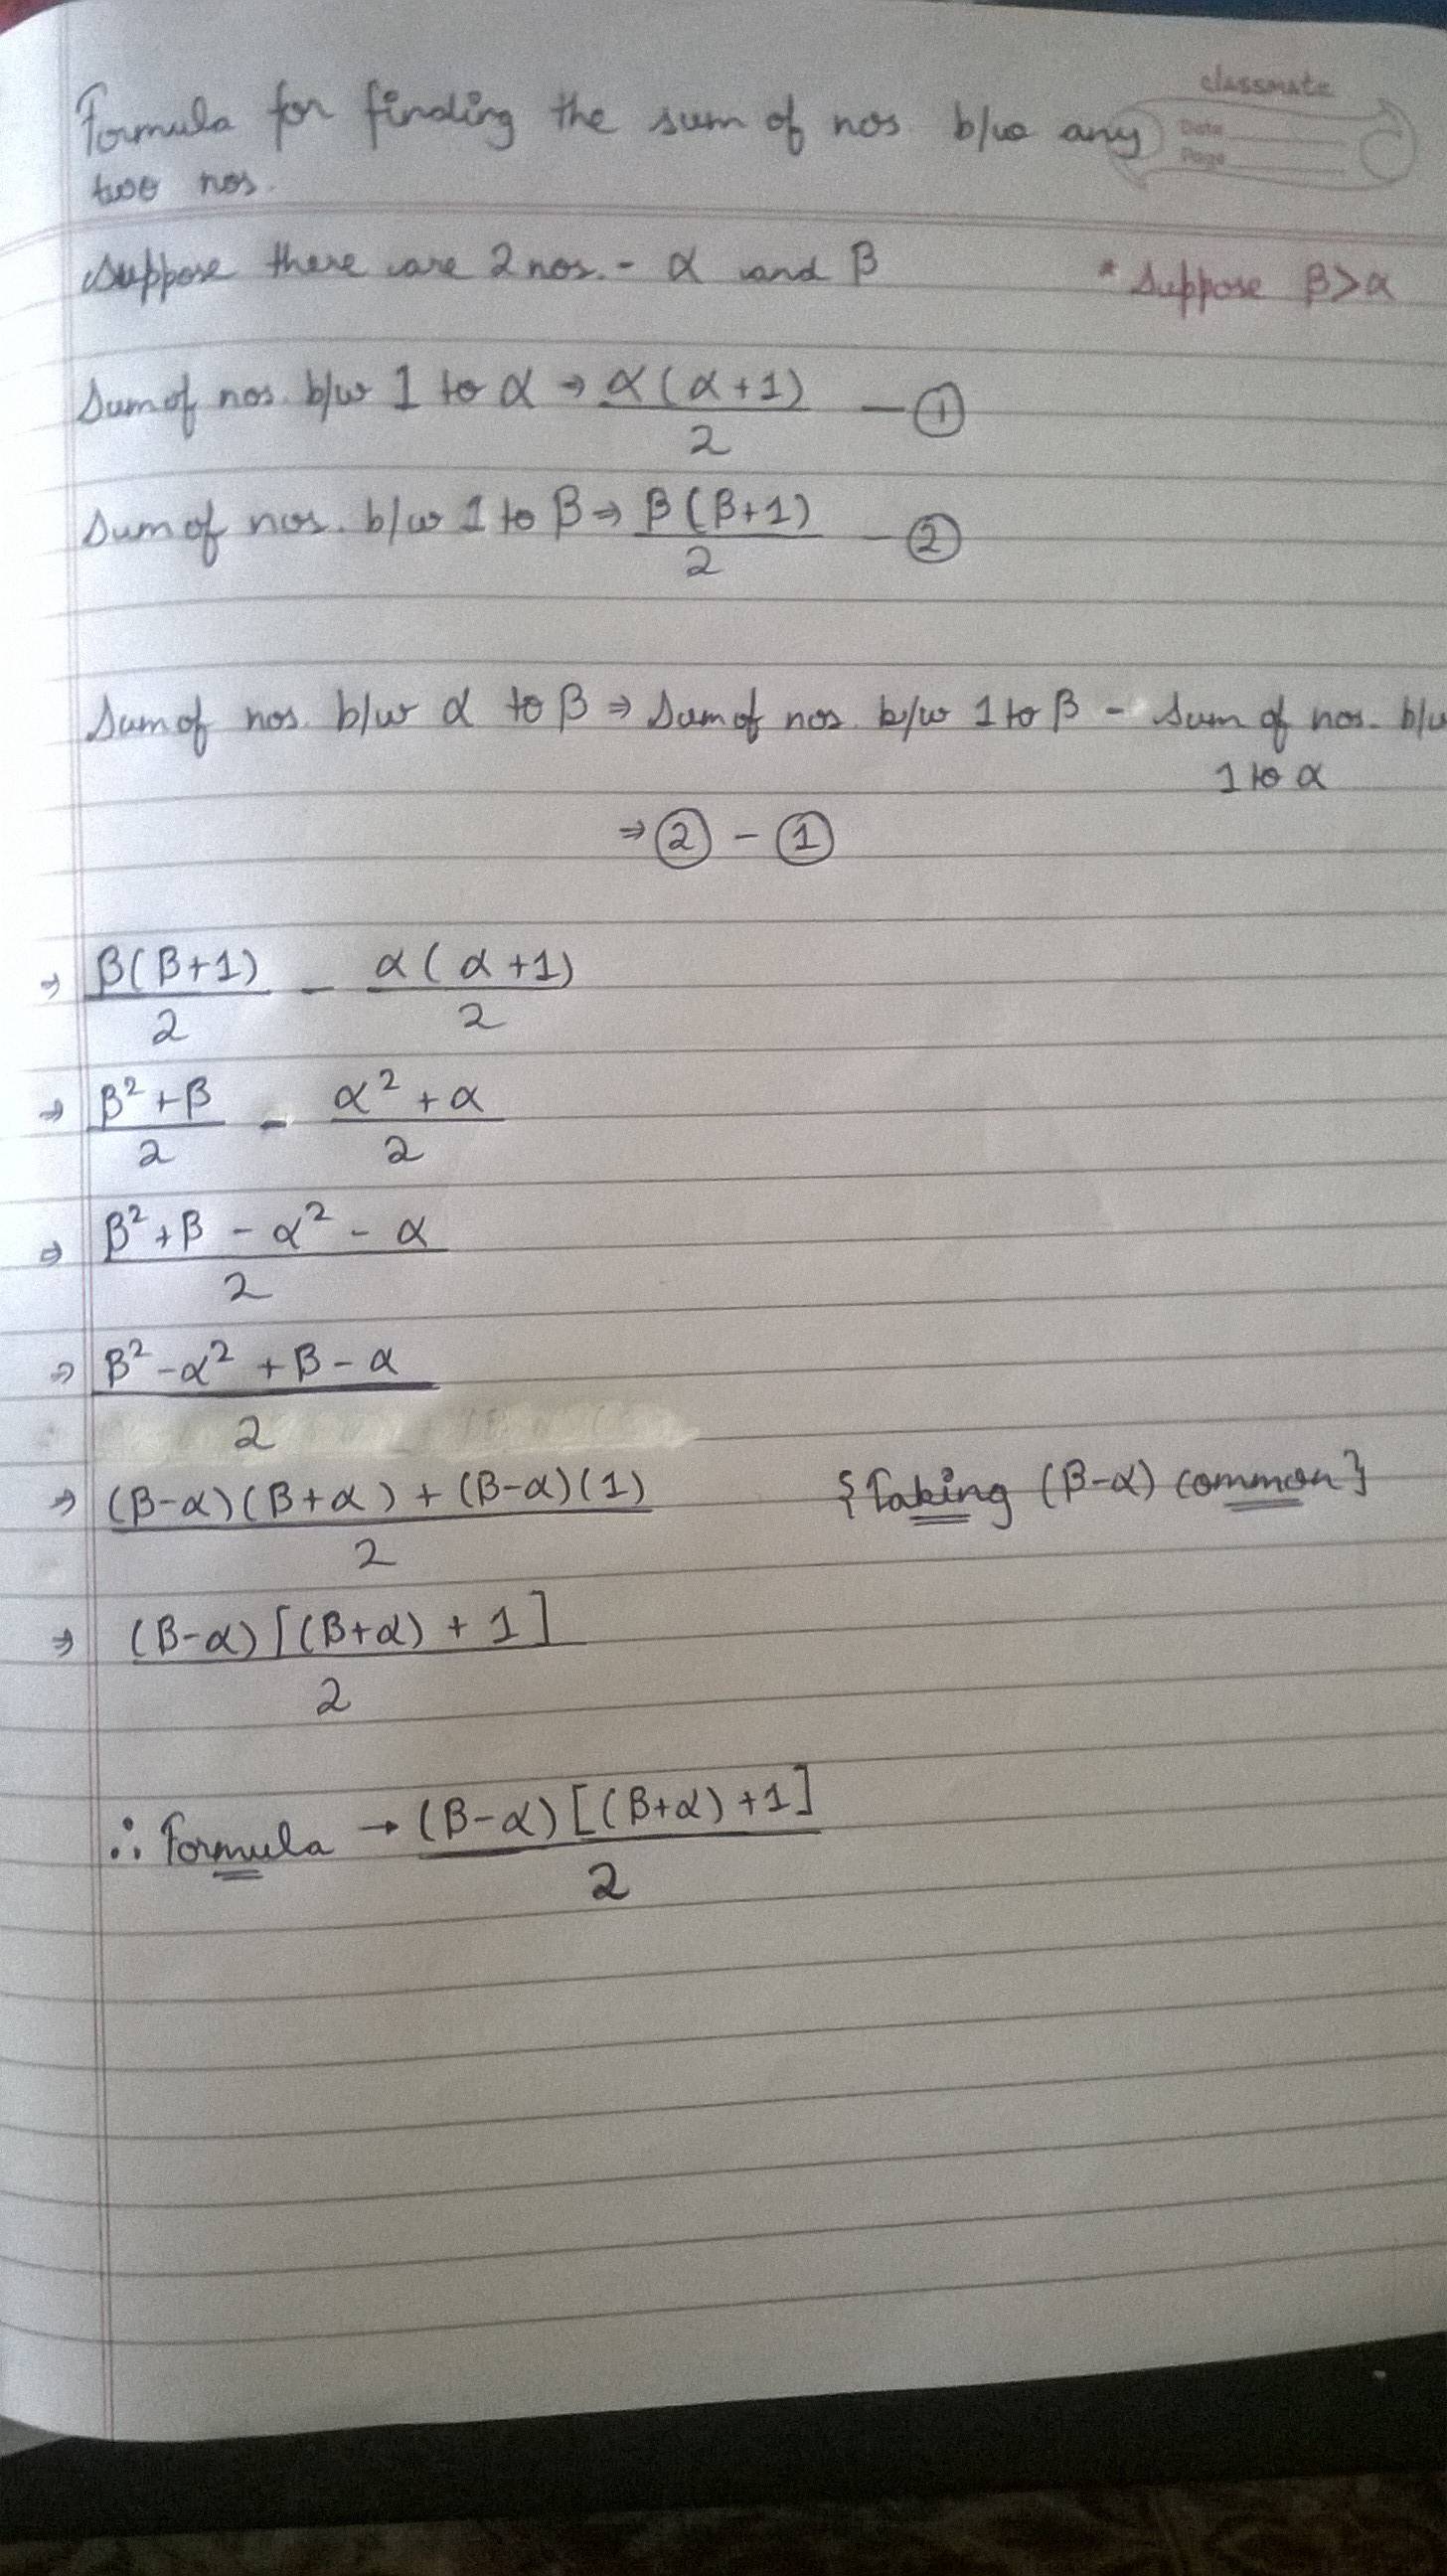 classmate
Date
Page
Formula for finding the sum of nos. b/w any
two nos.
Suppose there are 2 nos. - α and β
* Suppose β>α
Sum of nos. b/w 1 to α → α(α+1)/2 — ①
Sum of nos. b/w 1 to β ⇒ β(β+1)/2 — ②
Sum of nos. b/w α to β ⇒ Sum of nos. b/w 1 to β - Sum of nos. b/w
1 to α
⇒ ② - ①
⇒ β(β+1)/2 - α(α+1)/2
⇒ β²+β/2 - α²+α/2
⇒ β²+β-α²-α/2
⇒ β²-α²+β-α/2
⇒ (β-α)(β+α)+(β-α)(1)/2 {Taking (β-α) common}
⇒ (β-α)[(β+α)+1]/2
∴ Formula → (β-α)[(β+α)+1]/2